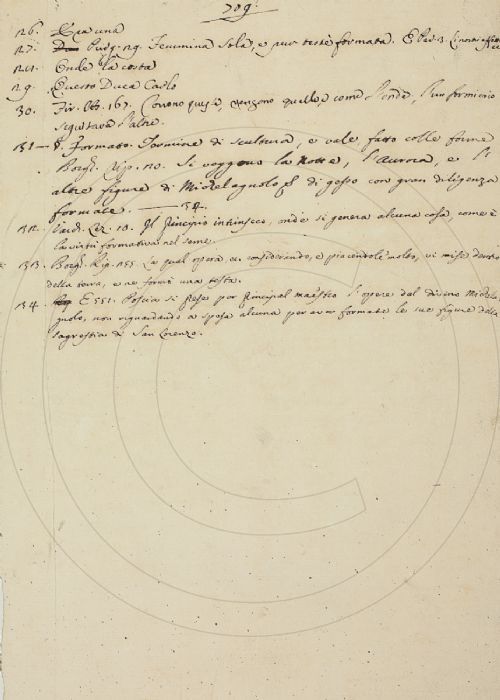 709.
126. Era una
127. Purg. 29. Femmina sola, e pur testè formata. E Par. 3.
128. Onde la costa
29. Questo Duca Carlo
30. Fir. 167. Corrono queste, vengono quelle, come l'onde, l'un formicaio
seguitava l'altro.
131 — §. Formato. Termine di scultura, e vale fatto colle forme
Borgh. Rip. 20. Si veggono la Notte, l'Aurora, e l'
altre figure di Michelagnolo di gesso con gran diligenza
formate. —
132. Varch. Lez. 10. Il principio intrinseco, onde si genera alcuna cosa, come è
la virtù formativa nel seme.
133. Borgh. Rip. 155. La qual opera considerando, e piacendole molto, vi mise dentro
della terra, e ne formò una testa.
134. E 551. Poscia si prese per principal maestro l'opere del divino Michela
gnolo, non riguardando a spesa alcuna per aver formate le sue figure della
sagrestia di San Lorenzo.